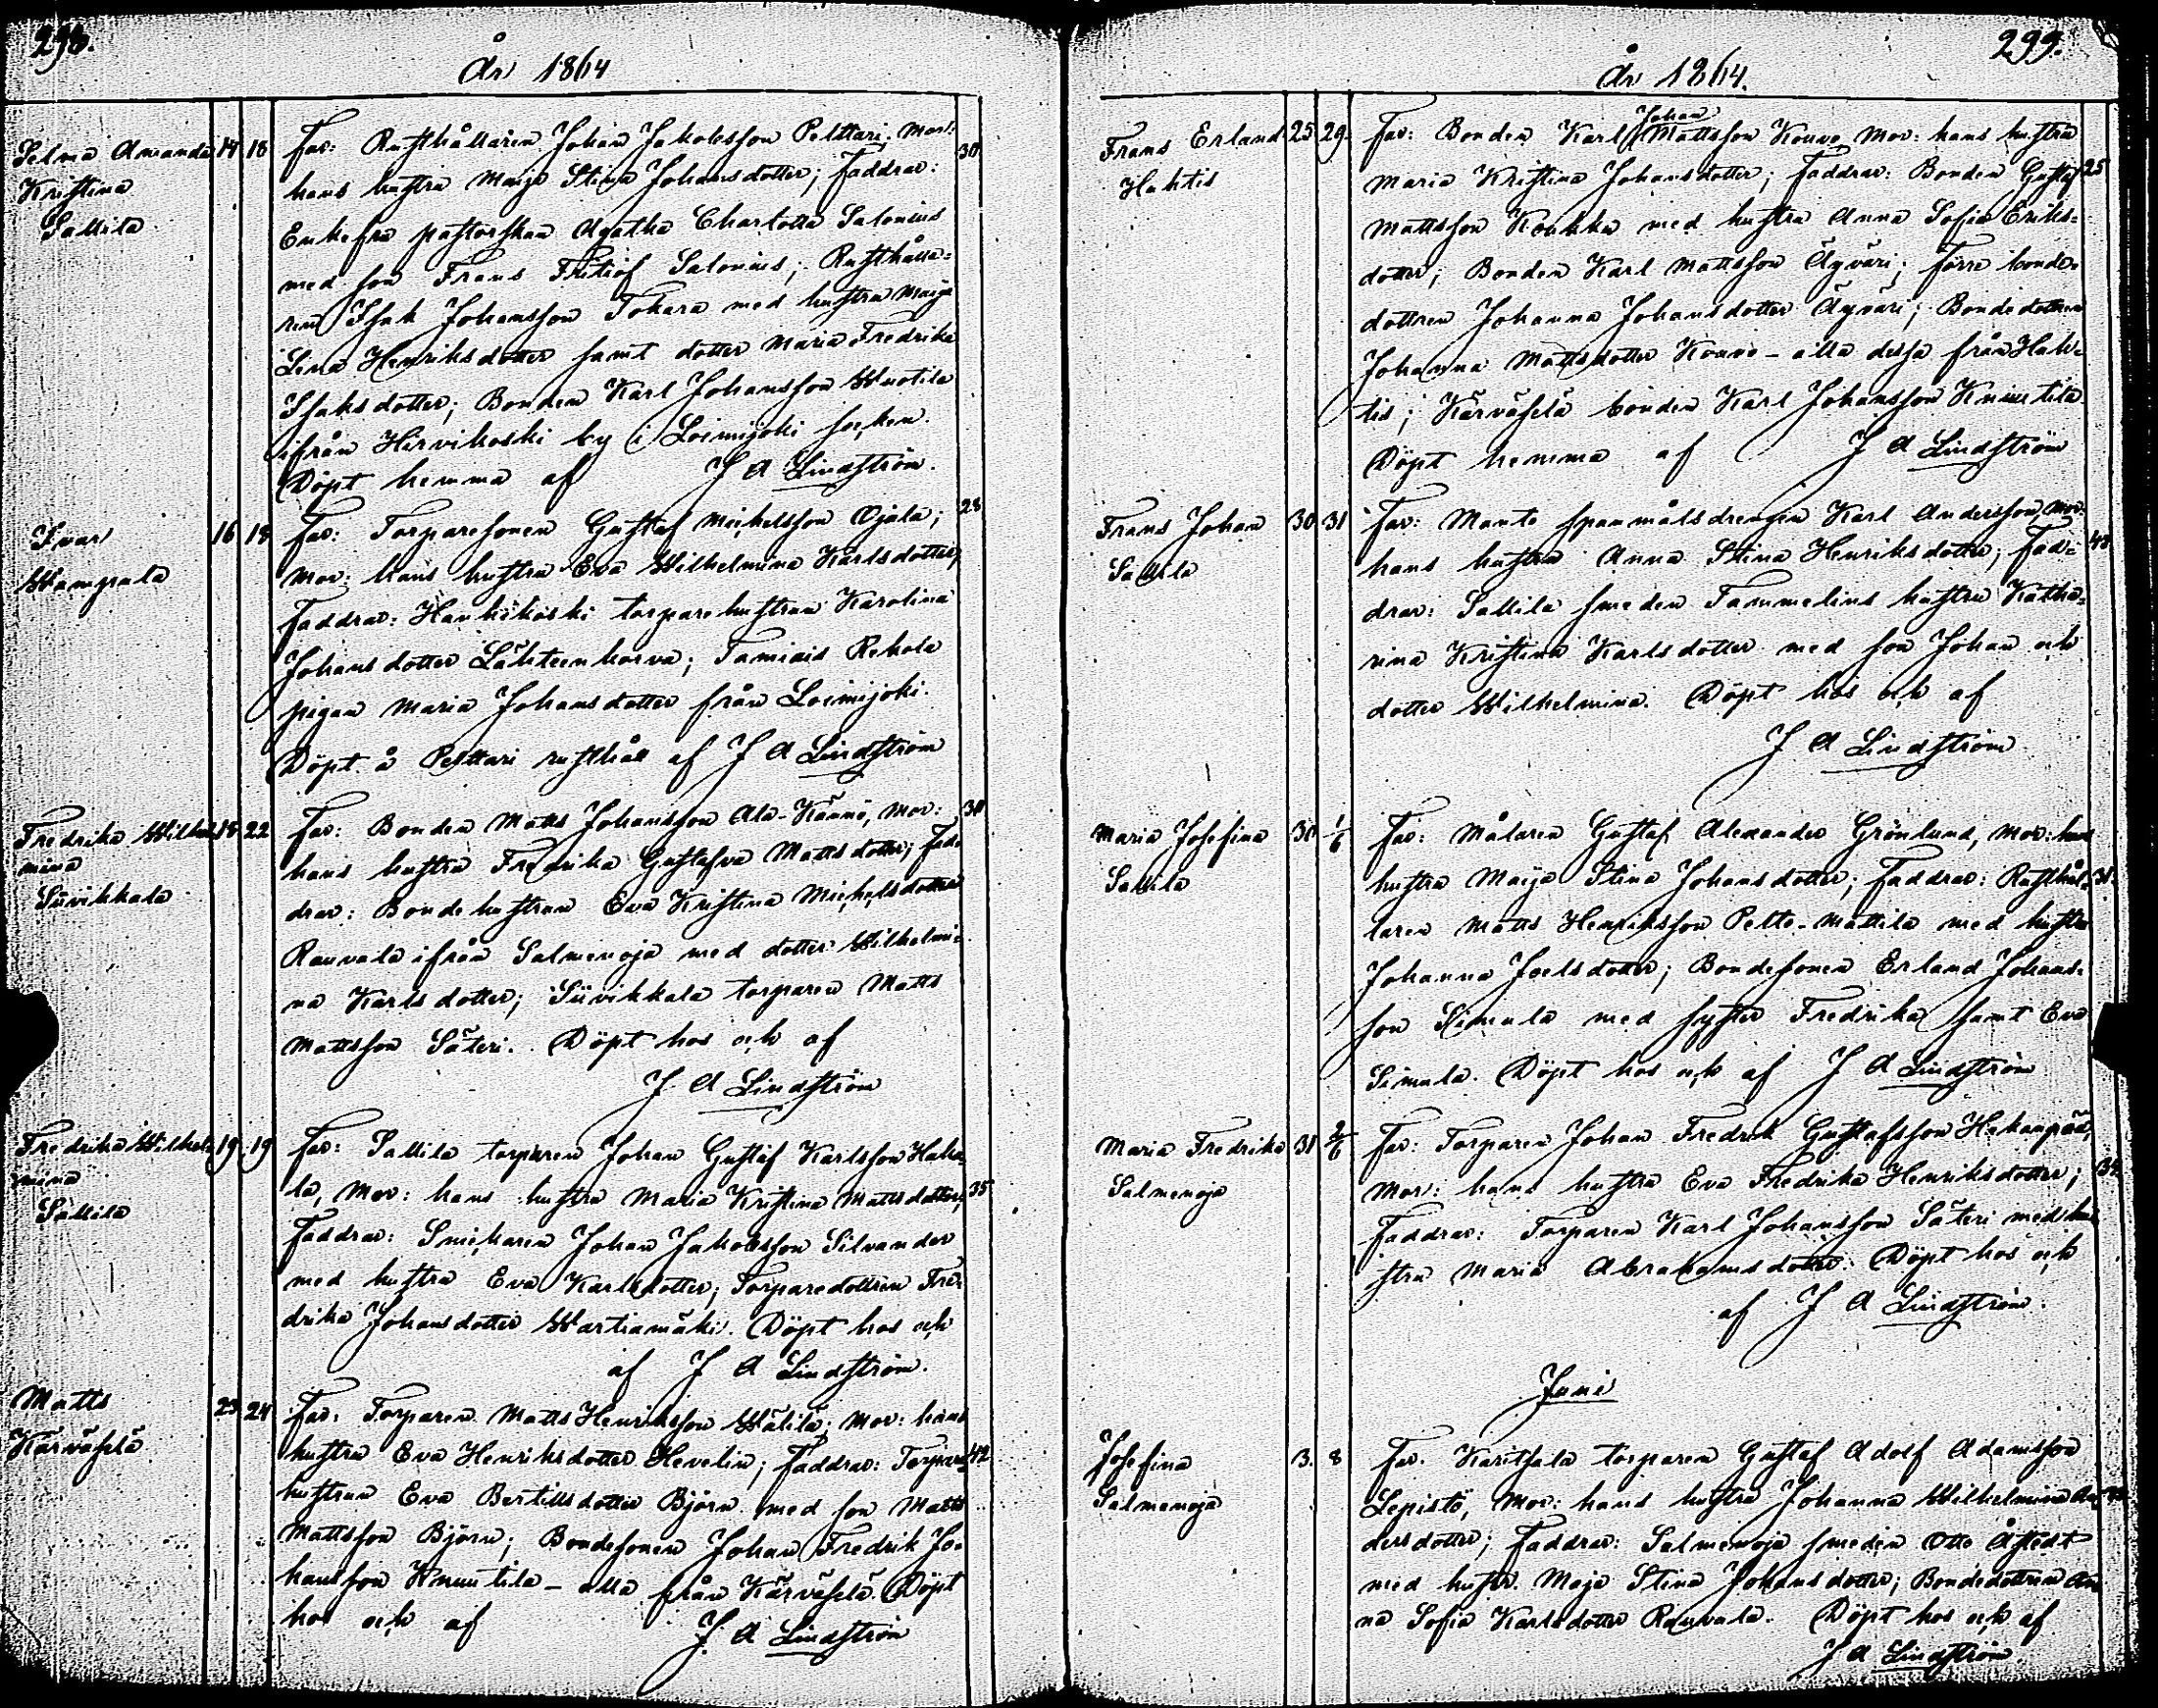 298.
År 1864
Selma Amanda 14 18 Far: Rusthållaren Johan Jakobsson Pelttari; Mor: 30
Kristina hans hustru Maija Stina Johansdotter; Faddrar:
Sallila Enkefru pastorskan Agatha Charlotta Salonius
med son Frans Fritiof Salonius; Rusthålla-
ren Isak Johansson Tokara med hustru Maija
Lena Henriksdotter samt dotter Maria Fredrika
Isaksdotter; Bonden Karl Johansson Wuotila
ifrån Hirvikoski by i Loimijoki socken.
Döpt hemma af J A Lindström.
Ivar 16 18 Far: Torparesonen Gustaf Michelsson Ojala; 28
Wampula Mor: hans hustru Eva Wilhelmina Karlsdotter;
Faddrar: Hanhikoski torparehustrun Karolina
Johansdotter Lähteenkorva; Tamiais Rekola
pigan Maria Johansdotter från Loimijoki.
Döpt å Pelttari rusthåll af J A Lindström
Fredrika Wilhel- 18 22 Far: Bonden Matts Johansson Ala-Kännö, Mor: 30
mina hans hustru Fredrika Gustafva Mattsdotter; Fad-
Siivikkala drar: Bondehustrun Eva Kristina Michelsdotter
Rauvala ifrån Salmenoja med dotter Wilhelmi-
na Karlsdotter; Siivikkala torparen Matts
Mattsson Säteri. Döpt hos och af
J A Lindström
Fredrika Wilhel- 19 19 Far: Sallila torparen Johan Gustaf Karlsson Haka-
mina la, Mor: hans hustru Maria Kristina Mattsdotter; 35
Sallila Faddrar: Snickaren Johan Jakobsson Silvander
med hustru Eva Karlsdotter; Torparedottren Fre-
drika Johansdotter Wartiamäki. Döpt hos och
af J A Lindström.
Matts 23 24 Far: Torparen Matts Henriksson Wälilä; Mor: hans
Kärväselä hustru Eva Henriksdotter Hevelin; Faddrar: Torpare- 42
hustrun Eva Bertillsdotter Björn med son Matts
Mattsson Björn; Bondesonen Johan Fredrik Jo-
hansson Knuutila - alla från Kärväselä. Döpt
hos och af J A Lindström
299.
År 1864.
Frans Erland 25 29. Far: Bonden Karl Johan Mattsson Kouvo, Mor: hans hustru
Hahtis Maria Kristina Johansdotter; Faddrar: Bonden Gustaf 25
Mattsson Koukku med hustru Anna Sofia Eriks-
dotter; Bonden Karl Mattsson Äyväri; förre bonde-
dottren Johanna Johansdotter Äyväri; Bondedottren
Johanna Mattsdotter Kouvo - alla dessa från Hah-
tis; Kärväselä bonden Karl Johansson Knuutila
Döpt hemma af J A Lindström
Frans Johan 30 31 Far: Manto spanmålsdrengen Karl Andersson, Mor:
Sallila hans hustru Anna Stina Henriksdotter; Fad- 40
drar: Sallila smeden Tammelins hustru Katha-
rina Kristina Karlsdotter med son Johan och
dotter Wilhelmina. Döpt hos och af
J A Lindström
Maria Josefina 30 1/6 Far: Målaren Gustaf Alexander Grönlund, Mor: hans
Sallila hustru Maija Stina Johansdotter; Faddrar: Rusthål- 31.
laren Matts Henriksson Pelto-Mattila med hustru
Johanna Joelsdotter; Bondesonen Erland Johans-
son Simula med syster Fredrika samt Eva
Simula. Döpt hos och af J A Lindström
Maria Fredrika 31 2/6 Far: Torparen Johan Fredrik Gustafsson Hakanpää,
Salmenoja Mor: hans hustru Eva Fredrika Henriksdotter; 34
Faddrar: Torparen Karl Johansson Säteri med hu-
stru Maria Abrahamsdotter. Döpt hos och
af J A Lindström.
Juni
Josefina 3. 8 Far. Karitsala torparen Gustaf Adolf Adamsson
Salmenoja Lepistö, Mor: hans hustru Johanna Wilhelmina An-
dersdotter; Faddrar: Salmenoja smeden Otto Åstedt
med hustr. Maja Stina Johansdotter; Bondedottren An-
na Sofia Karlsdotter Rauvala. Döpt hos och af
J A Lindström.